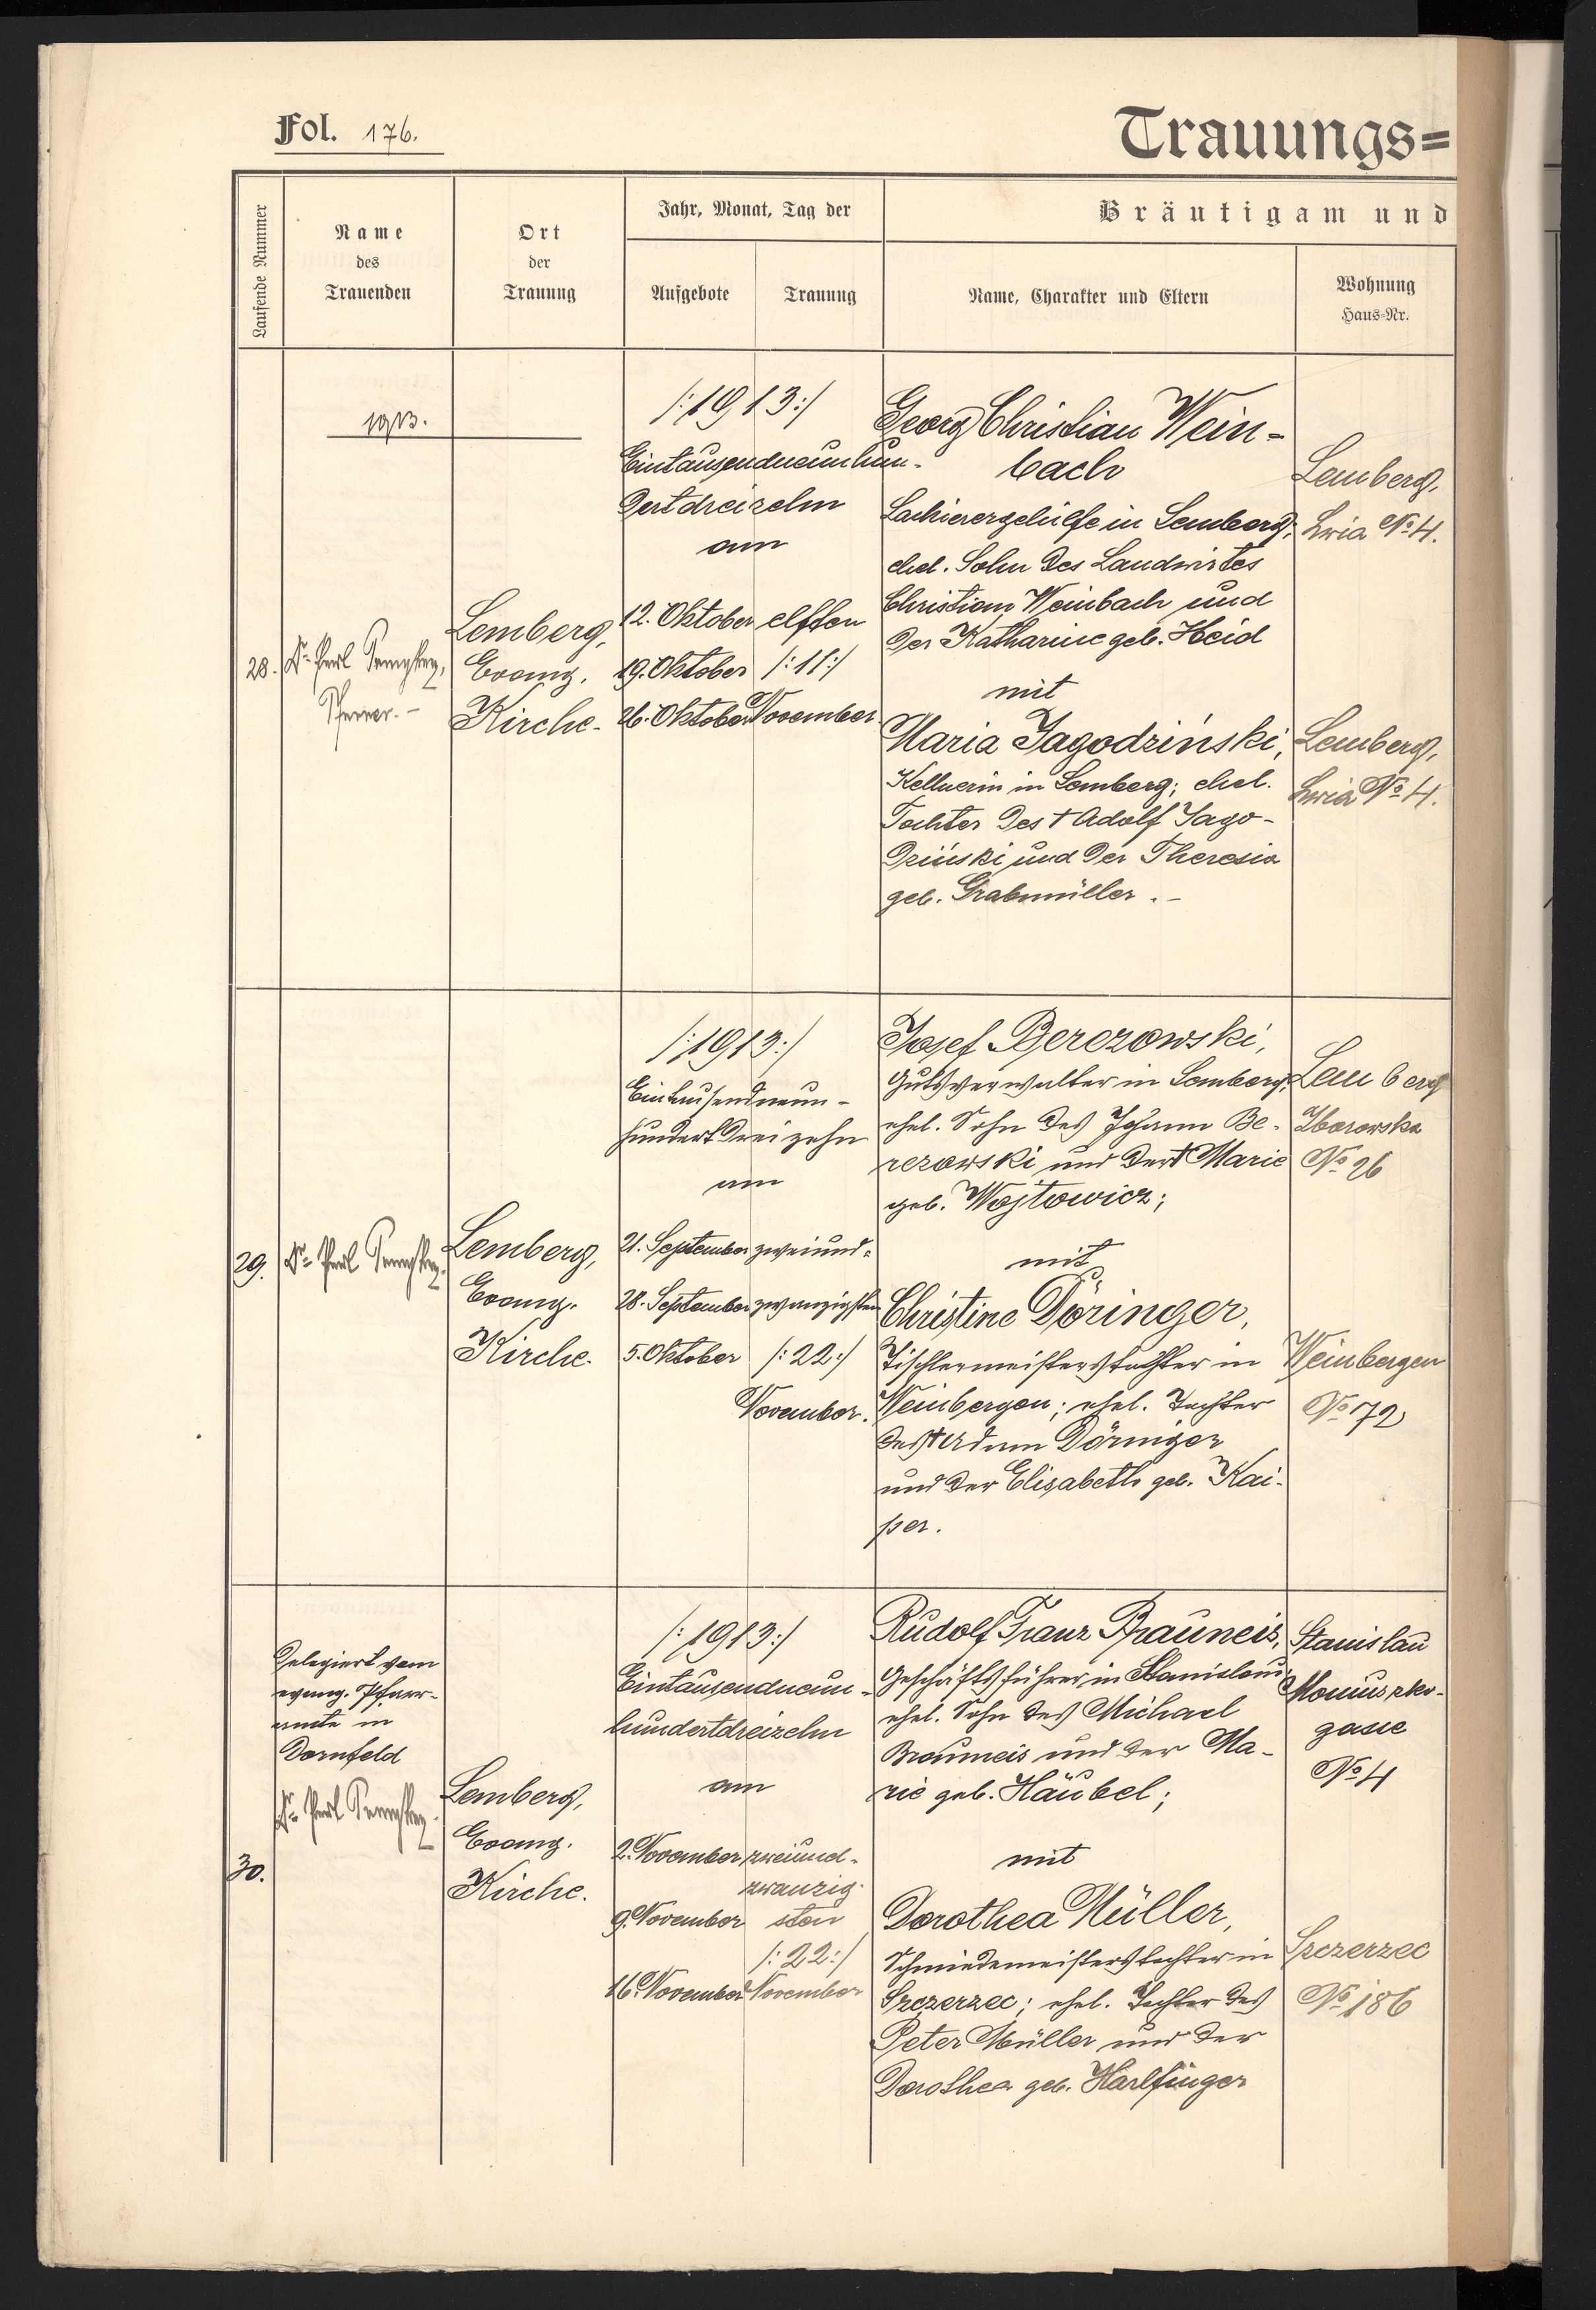 Fol. 176.
Trauungs=
Laufende Nummer
Name
des
Trauenden
Ort
der
Trauung
Jahr, Monat, Tag der
Aufgebote
Trauung
Bräutigam und
Name, Charakter und Eltern
Wohnung
Haus-Nr.
1913.
28.
Pfarrer. -
Lemberg,
Evang.
Kirche.
/:1913:/
Eintausendneunhun-
dertdreizehn
am
12. Oktober
19. Oktober
26. Oktober
elften
/:11:/
November
Georg Christian Wein-
bach
Lackierergehilfe in Lemberg;
ehel. Sohn des Landwirtes
Christian Weinbach und
der Katharine geb. Heid
mit
Maria Jagodziński,
Kellnerin in Lemberg; ehel.
Tochter des † Adolf Jago-
dziński und der Theresia
geb. Grabmüller. -
Lemberg,
Lwia No 4.
Lemberg,
Lwia No 4.
29.
Lemberg,
Evang.
Kirche.
/:1913:/
Eintausendneun-
hundertdreizehn
am
21. September
28. September
5. Oktober
zweiund-
zwanzigsten
/:22:/
November.
Josef Berezowski,
Gutsverwalter in Lemberg,
ehel. Sohn des Johann Be-
rezowski und der † Marie
geb. Wojtowicz;
mit
Christine Döringer,
Tischlermeisterstochter in
Weinbergen; ehel. Tochter
des † Adam Döringer
und der Elisabeth geb. Kai-
per.
Lemberg
Zborowska
No 26
Weinbergen
No 72
30.
Delegiert vom
evang. Pfarr-
amte in
Dornfeld
Lemberg,
Evang.
Kirche.
/:1913:/
Eintausendneun-
hundertdreizehn
am
2. November
9. November
16. November
zweiund-
zwanzig-
sten
/:22:/
November
Rudolf Franz Brauneis,
Geschäftsführer in Stanislau;
ehel. Sohn des Michael
Brauneis und der Ma-
rie geb. Häubel;
mit
Dorothea Müller,
Schmiedemeisterstochter in
Szczerzec; ehel. Tochter des
Peter Müller und der
Dorothea geb. Harlfinger
Stanislau
Moniuszko-
gasse
No 4
Szczerzec
No 186